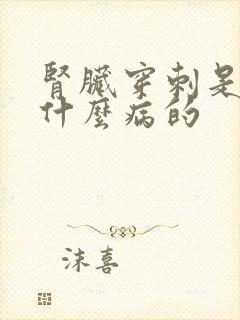 腎臟穿刺是
什麼病的
沫喜